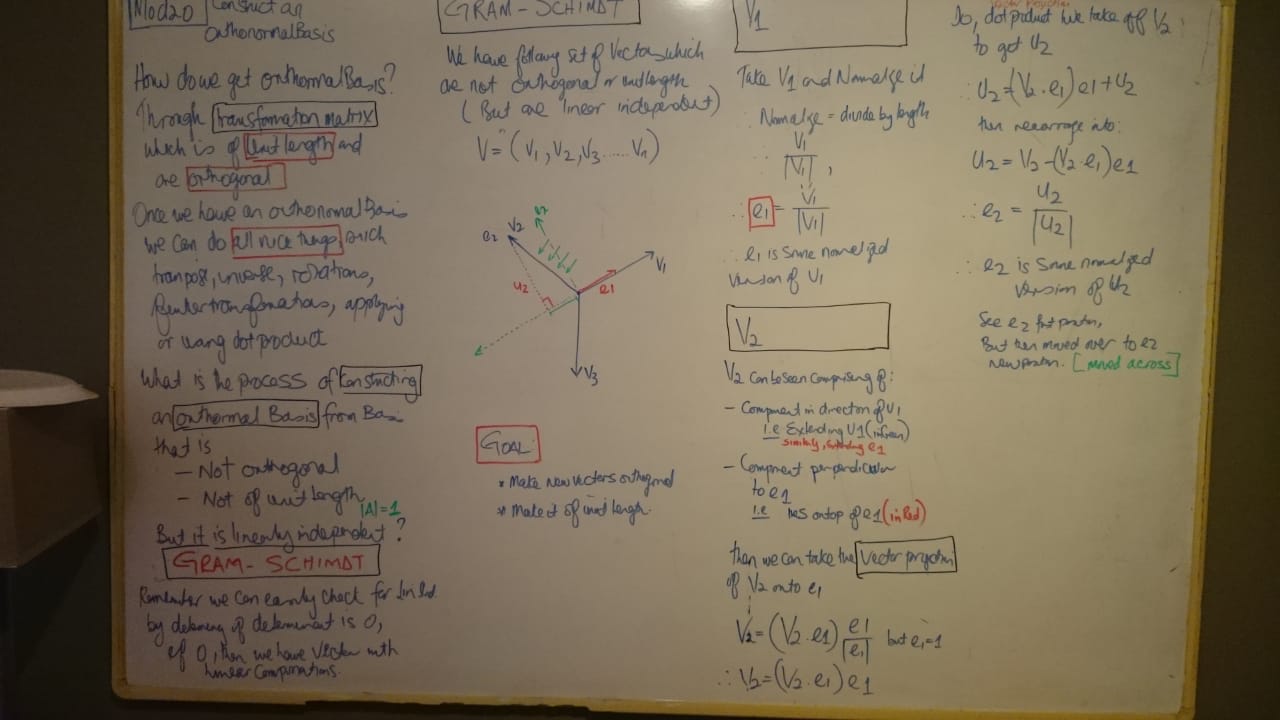 Mod20 Construct an
Orthonormal Basis
How do we get orthonormal Basis?
Through transformation matrix
which is of unit length and
are orthogonal
Once we have an orthonormal Basis
we can do all nice things, such
transpose, inverse, rotations,
transformations, applying
or using dot product
What is the process of constructing
an orthonormal Basis from Basis
that is
- Not orthogonal
- Not of unit length |A|=1
But it is linearly independent?
GRAM-SCHIMDT
Remember we can easily check for lin Ind.
by determing if determinant is 0,
if 0, then we have Vector with
linear Combinations.
GRAM-SCHIMDT
We have following set of Vectors which
are not orthogonal or unit length
(But are linear independent)
V = (V1, V2, V3 ..... Vn)
e2
V2
u2
e1
V1
V3
GOAL:
* Make new vectors orthogonal
* Make it of unit length.
V1
Take V1 and Normalize it
Normalize = divide by length
∴ V1
|V1|,
∴ e1 = V1
|V1|
∴ e1 is Some normalized
version of V1
V2
V2 can be seen comprising of:
- Component in direction of V1
i.e Extending V1 (in Green)
similarly, extending e1
- Component perpendicular
to e1
i.e lies on top of e1 (in Red)
then we can take the Vector projection
of V2 onto e1
V2 = (V2 . e1) e1
|e1| but e1=1
∴ V2 = (V2 . e1) e1
So, dot product we take off V2
to get U2
∴ U2 = (V2 . e1) e1 + U2
then rearrange into:
U2 = V2 - (V2 . e1) e1
∴ e2 = U2
|U2|
∴ e2 is Some normalized
version of U2
See e2 first position,
But then moved over to e2
new position. [moved across]